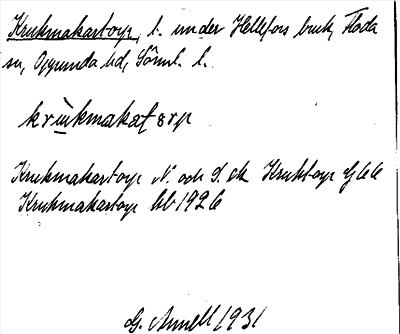 Krukmakartorp, t. under Hellefors bruk, Floda
sn, Oppunda hd, Sörml. l.
krùkmakaʈɔrp
Krukmakartorp N. och S. ek Kruktorp GEK
Krukmakartorp kb 1926
G. Annell 1931